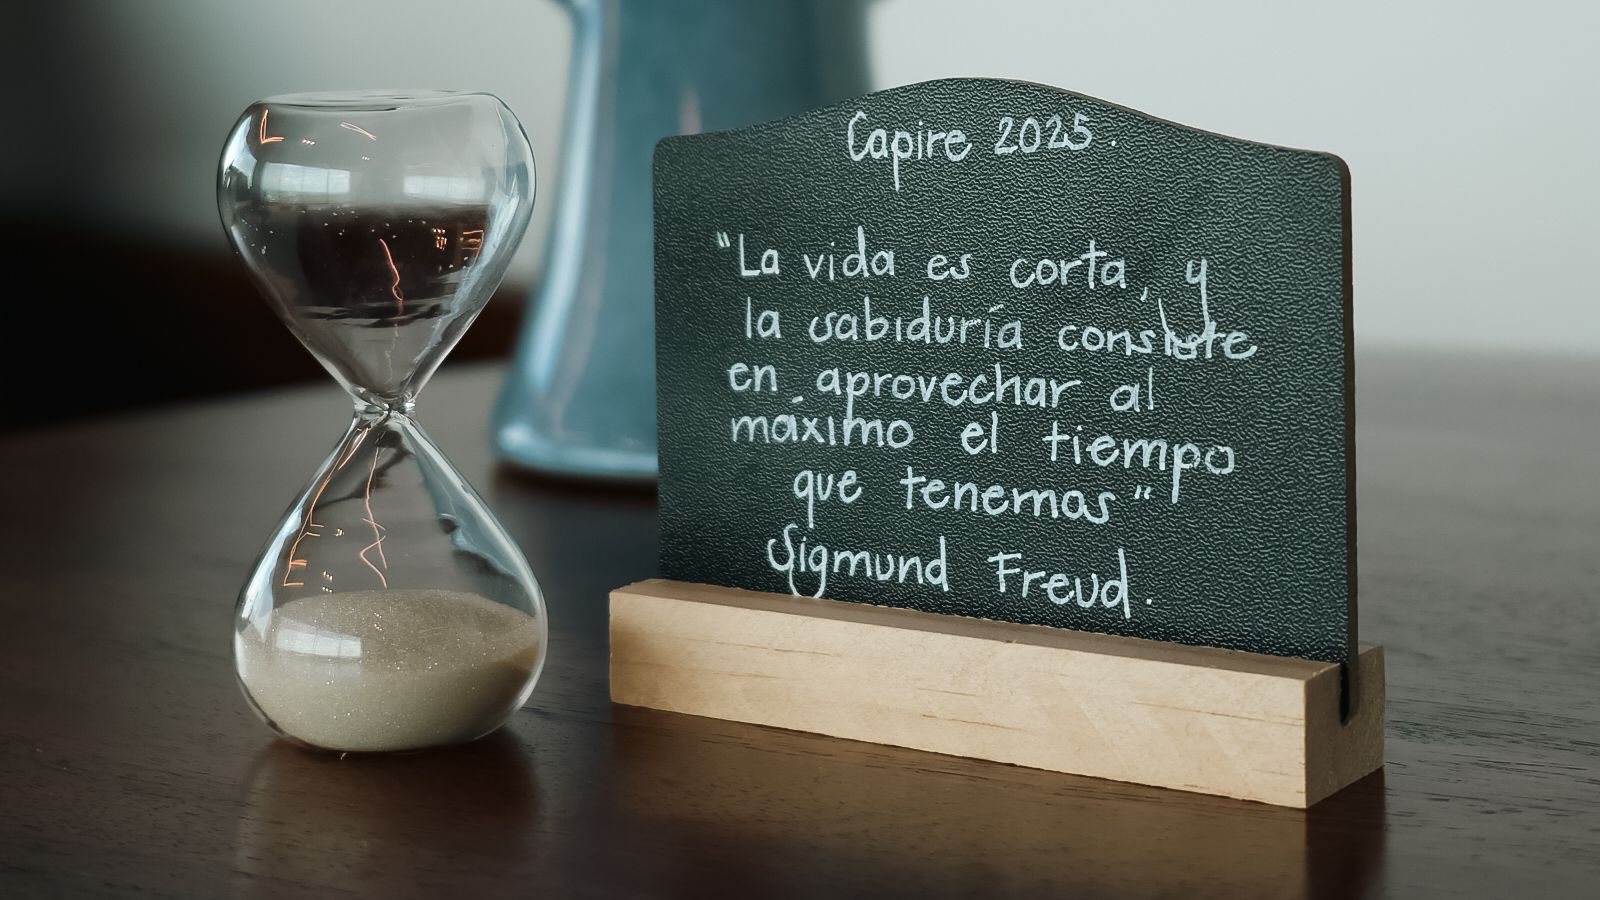 Capire 2025.
"La vida es corta, y
la sabiduría consiste
en aprovechar al
máximo el tiempo
que tenemos"
Sigmund Freud.